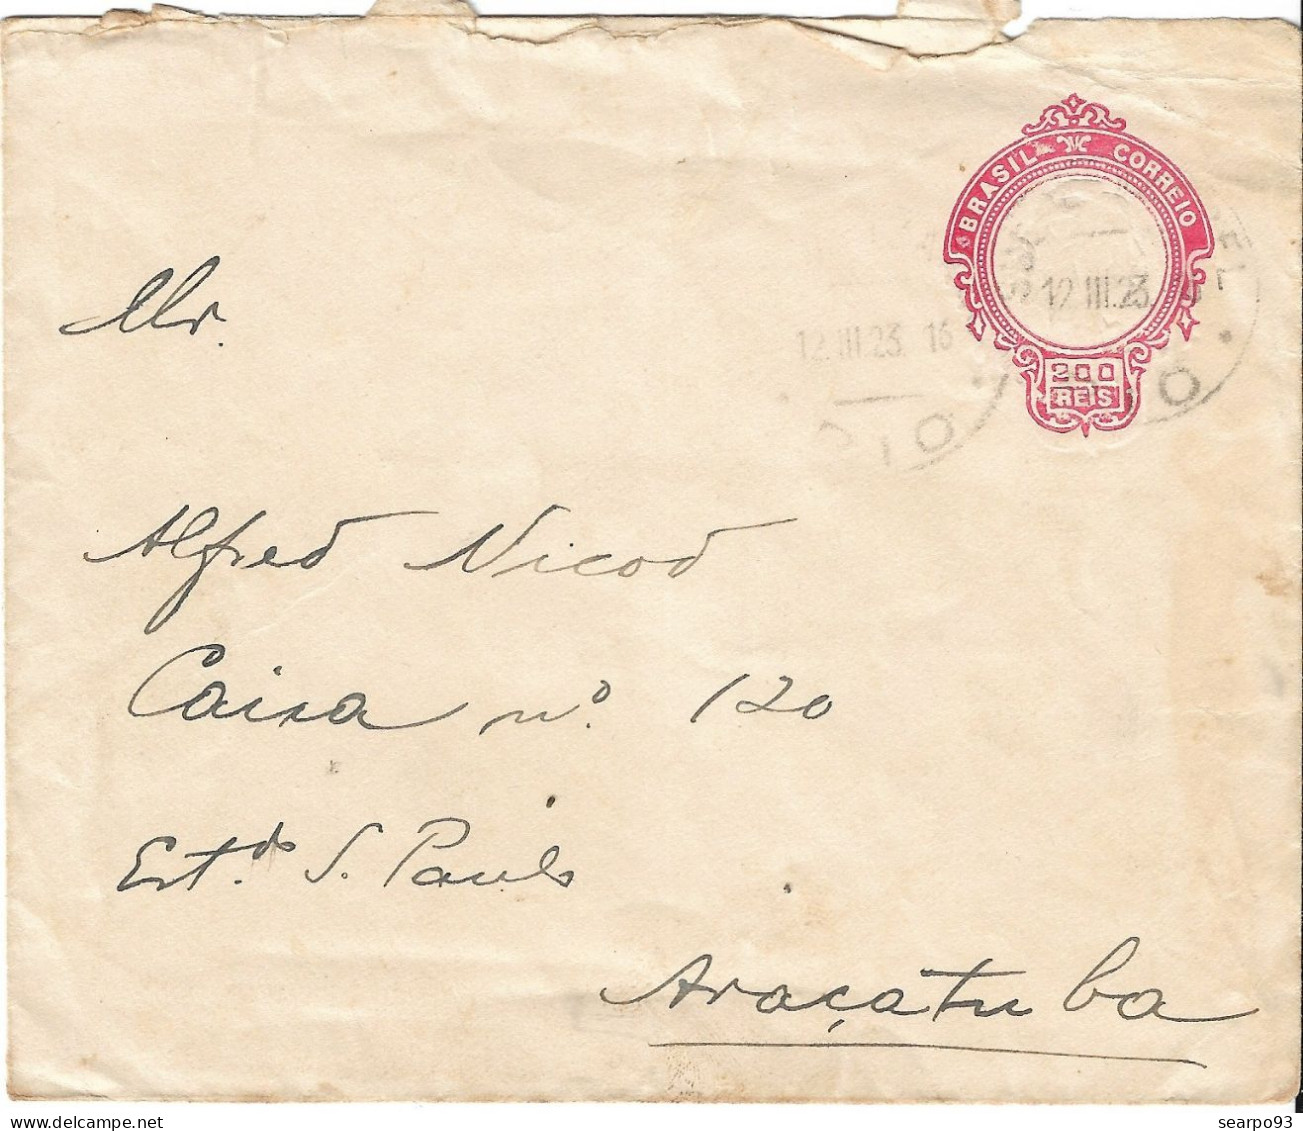 BRASIL CORREIO
12 III.23.
12.III.23. 16
200
REIS
Mr.
Alfred Nicod
Caixa nº. 120
Est.do S. Paulo
Araçatuba
searpo93